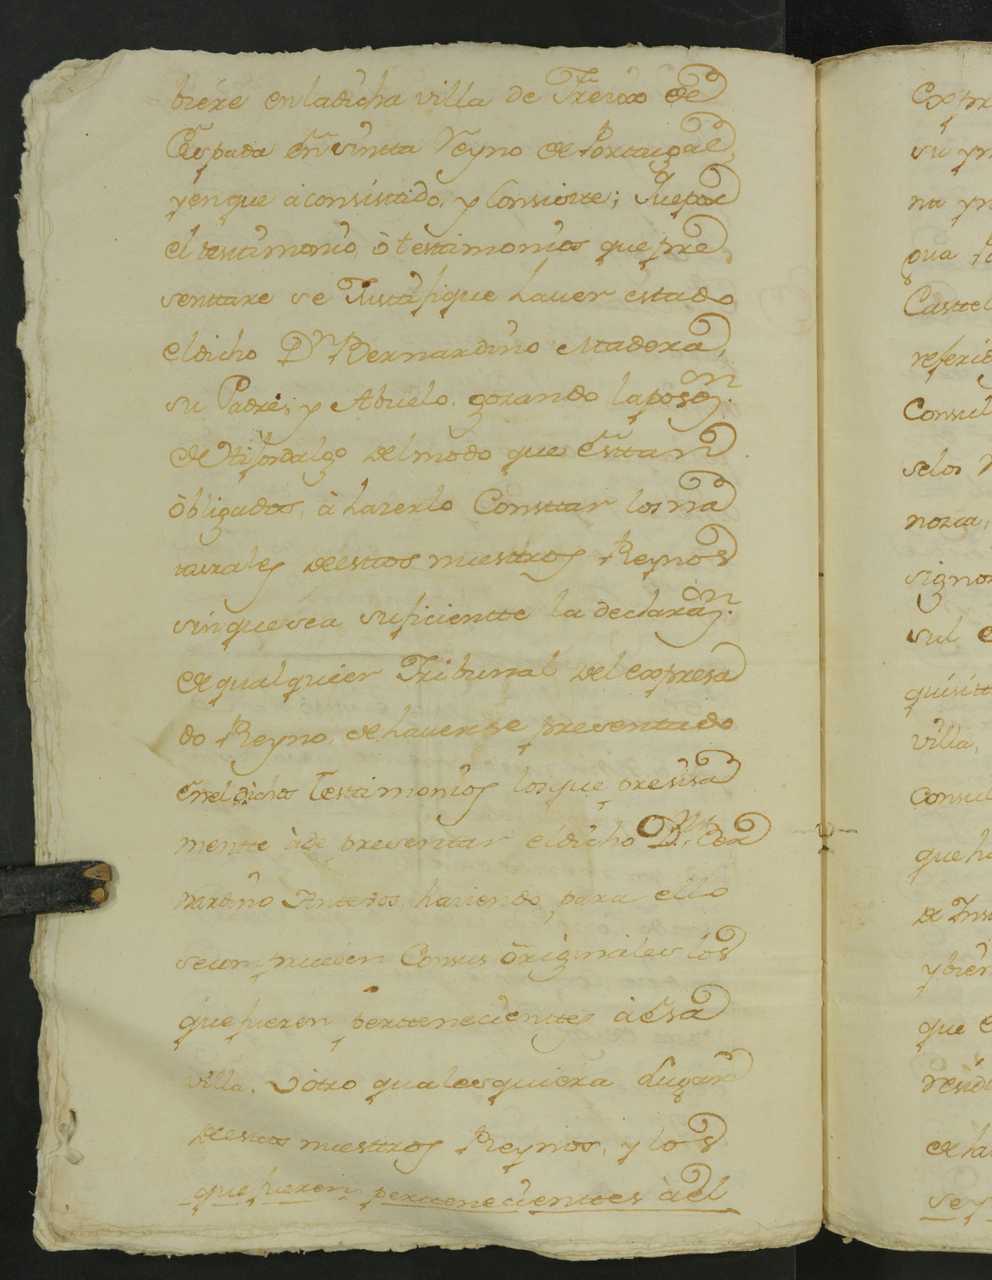 biere en la dicha villa de Freixo de
Espada en sintta Reyno de Portugal,
y en que à consistido, y Consiste; que por
el testimonio, ò testimonios que pre
senttare se Justifique haver estado
el dicho Dn. Bernardino Madera,
su Padre, y Abuelo. gozando la poson.
de Hijosdalgo del modo que Esttan
òbligados, à hazerlo Consttar los na
turales de estos nuestros Reynos
sin que sea suficientte la declaraon.
de qualquier Tribunal del expresa
do Reyno, de haverse presentado
en el dichos Testimonios, los que presisa
mentte à de presentar el dicho Dn. Ber
nardino haviendo, para ello
se Comprueven Con sus òriginales los
que fueren pertenecienttes à Esa
villa. ù otro qualesquiera Lugar
de estos nuestros Reynos, y los
que fueren pertenecienttes à el
Expr
su yn
na yn
Castel
referid
Consul
se los
nozca,
signos
sul
quisitt
villa,
Consul
que ha
de Ins
y bien
que
resid
de la
se y